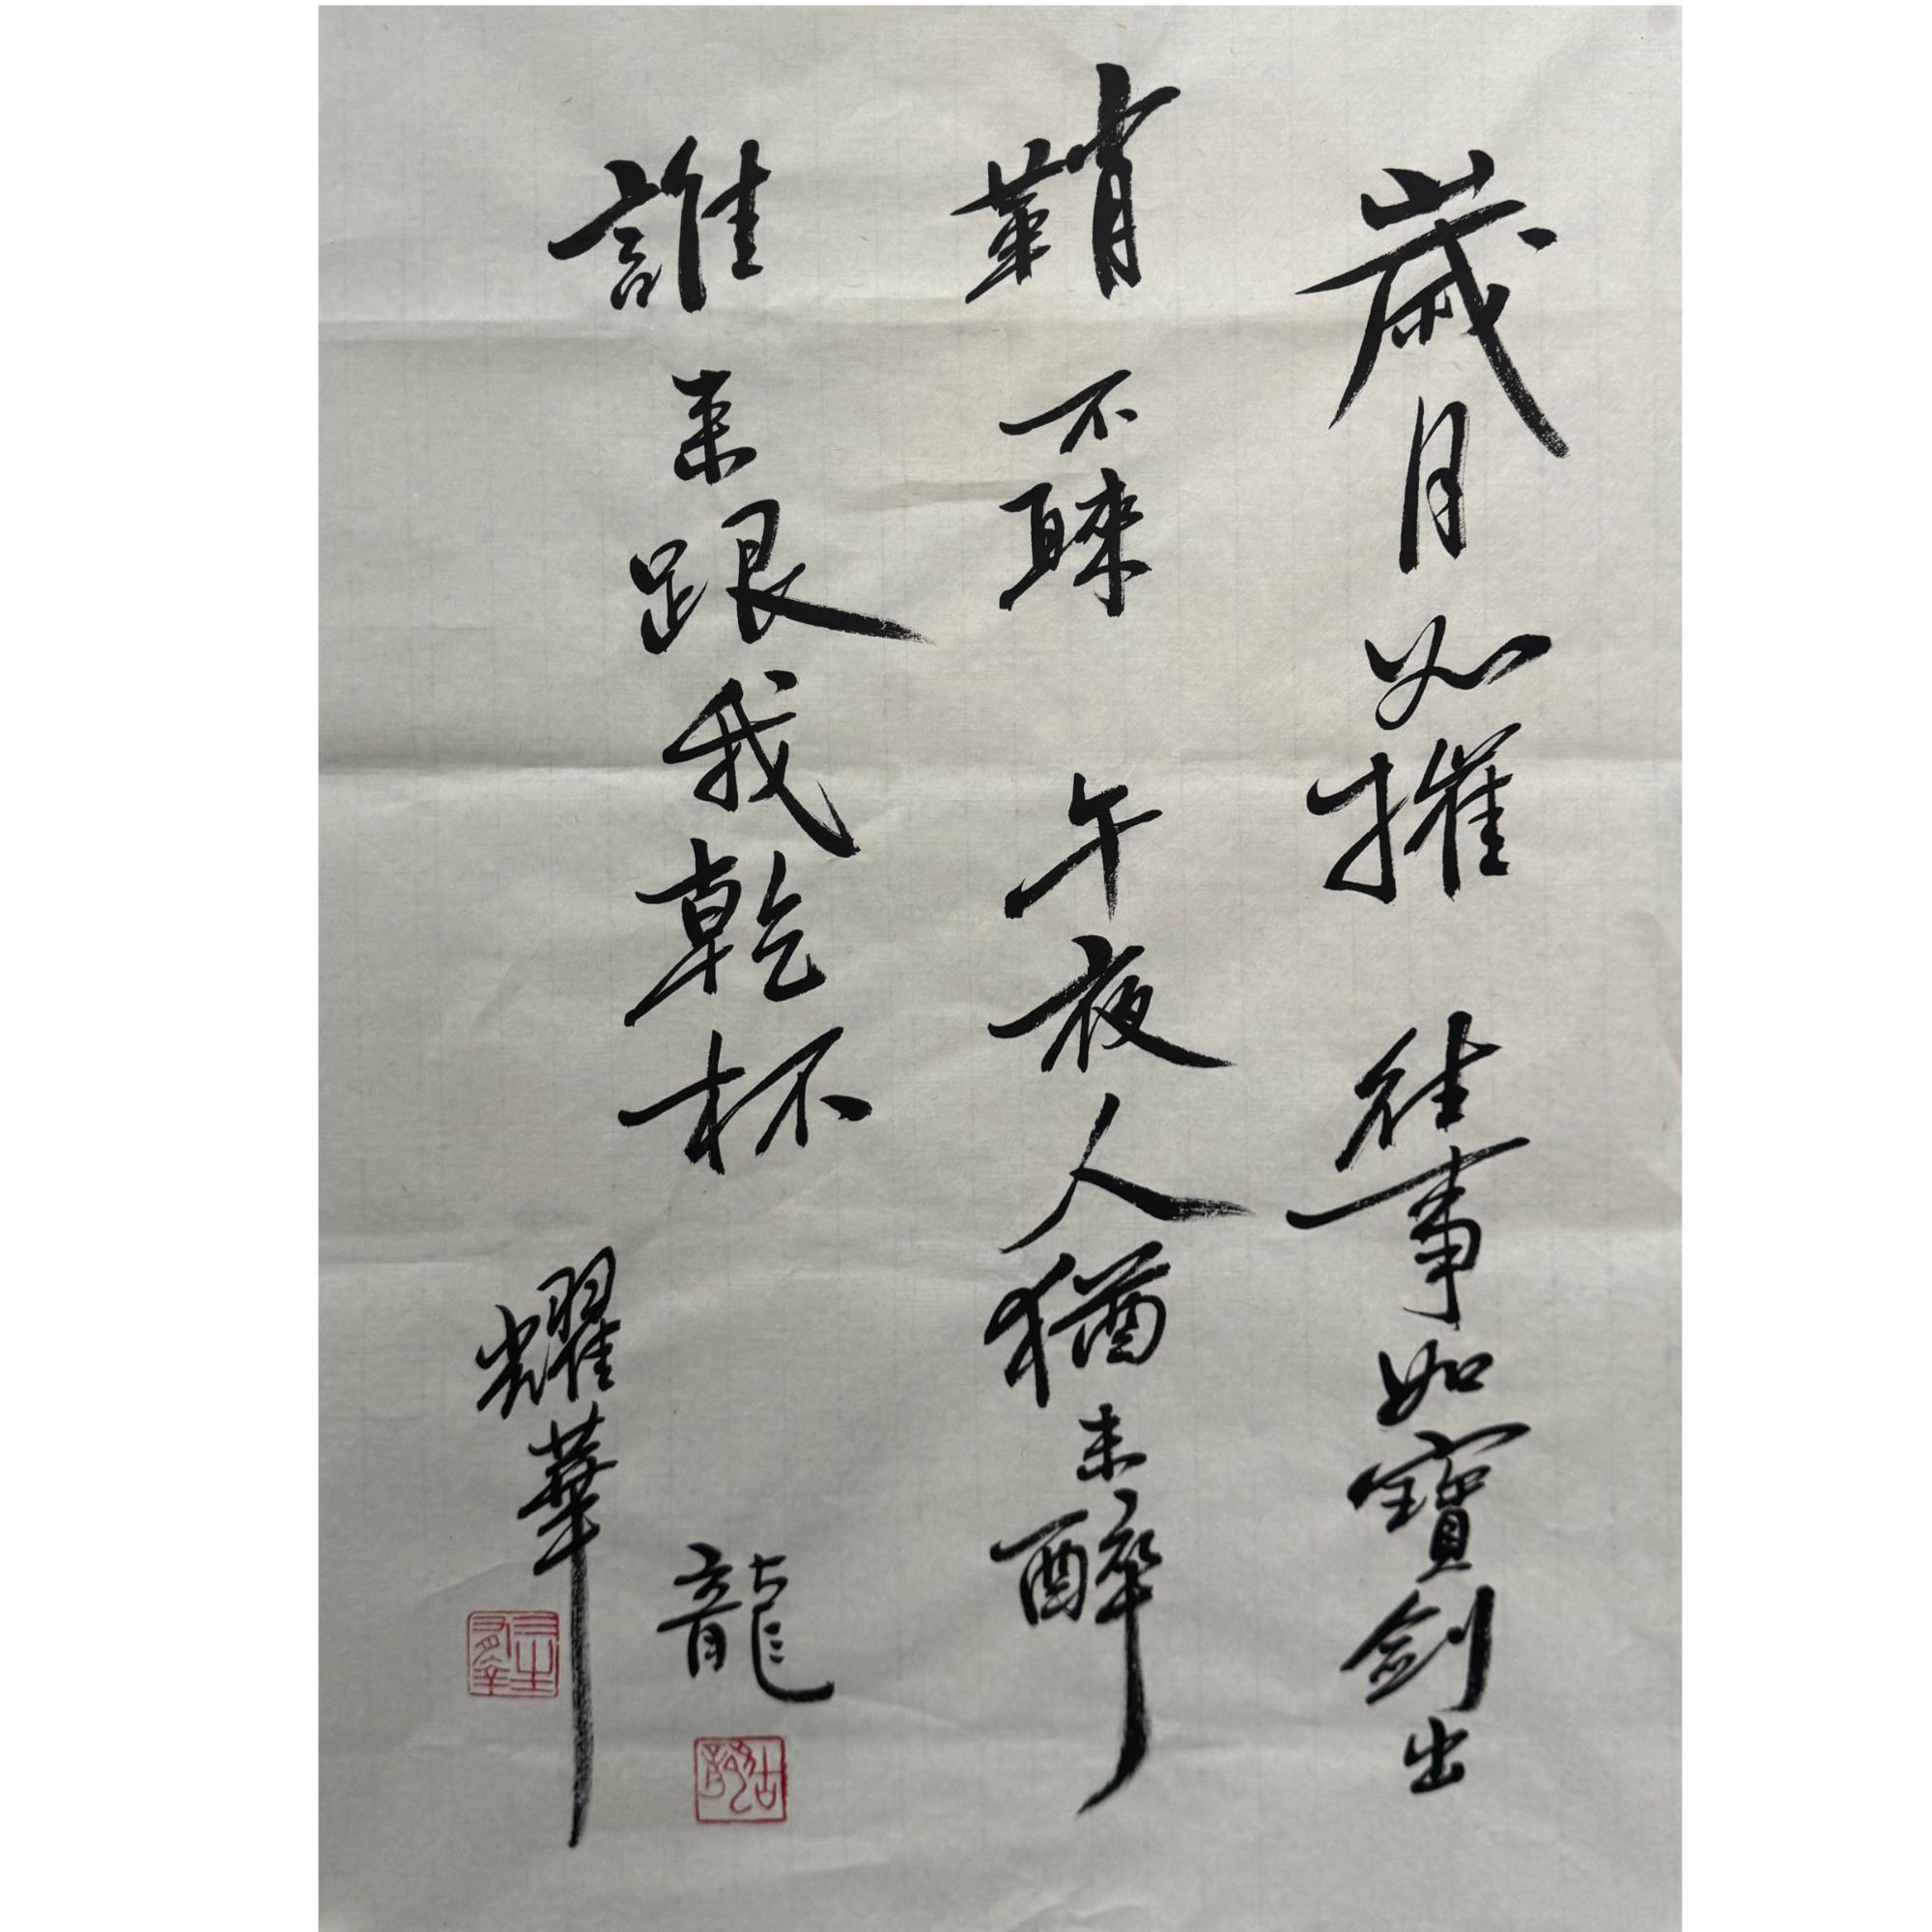 歲月如摧 往事如寶劍出
鞘不睞 午夜人猶未醉
誰来跟我乾杯 龍
耀華